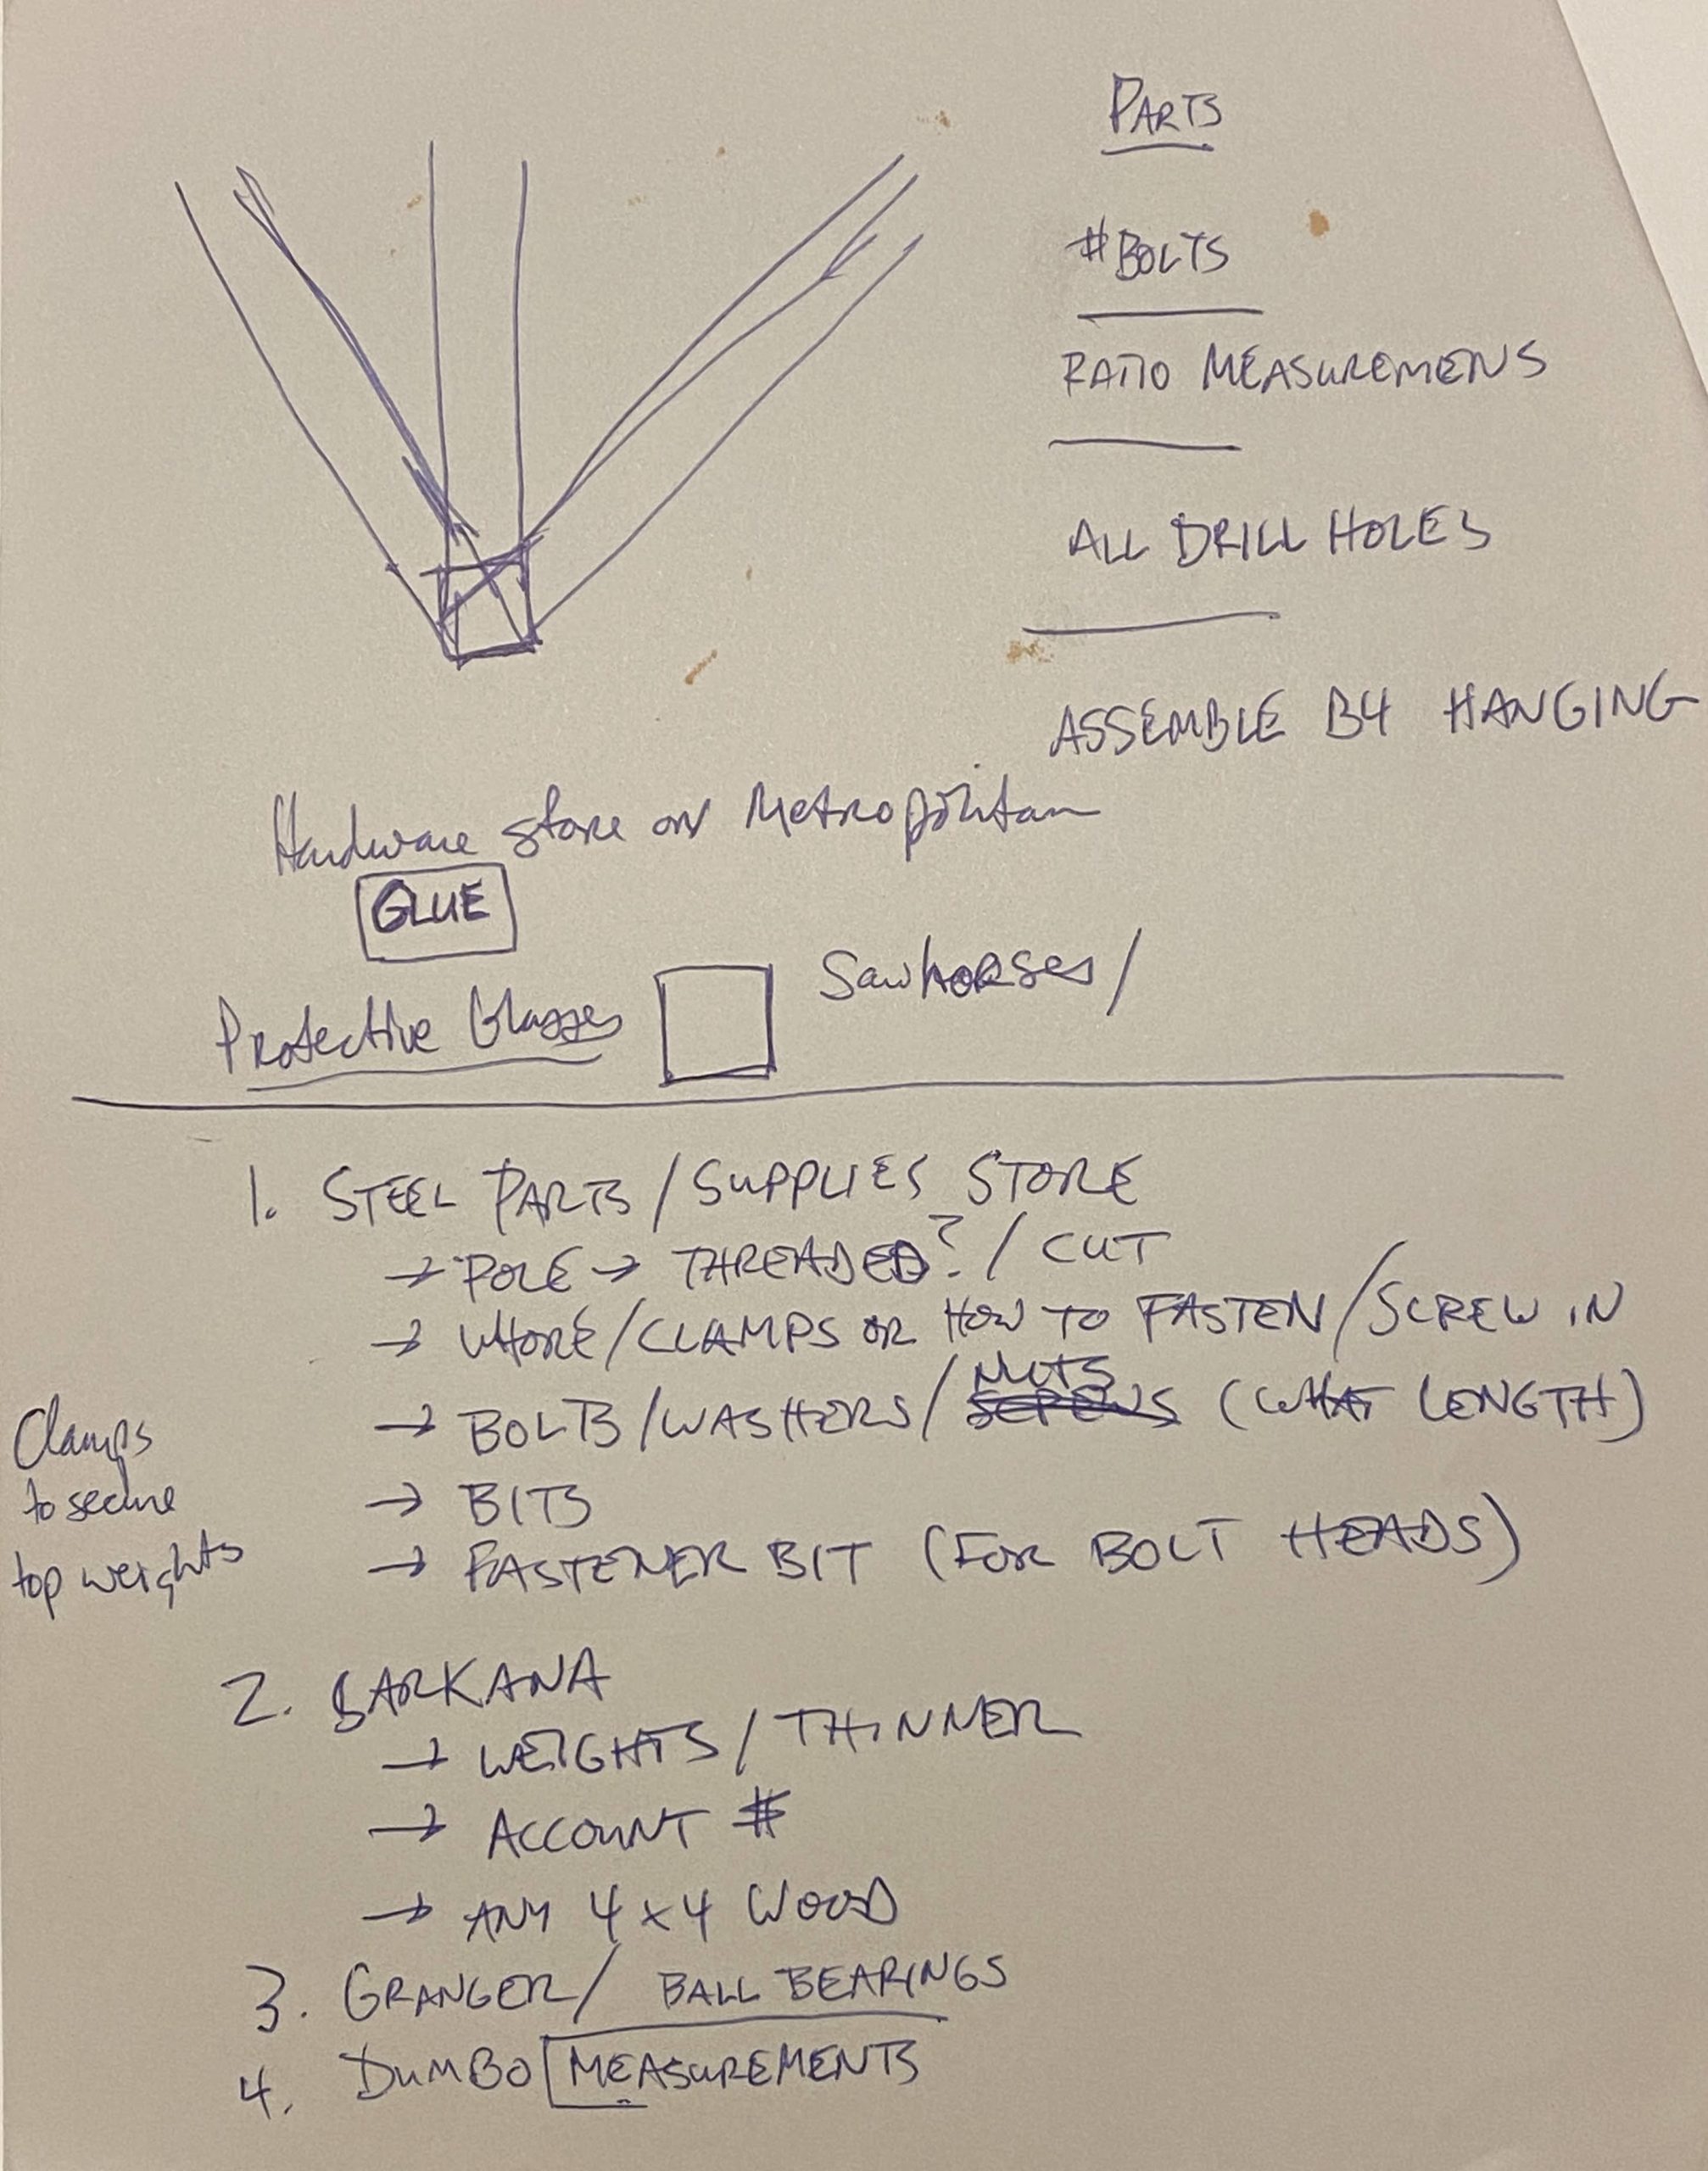 PARTS
#BOLTS
RATIO MEASUREMENS
ALL DRILL HOLES
ASSEMBLE B4 HANGING
Hardware store on Metropolitan
GLUE
Sawhorses/
Protective Glasses
1. STEEL PARTS/SUPPLIES STORE
→ POLE → THREADED?/CUT
→ /CLAMPS OR HOW TO FASTEN/SCREW IN
NUTS
→ BOLTS/WASHERS/SCREWS (WHAT LENGTH)
Clamps
to secure
top weights
→ BITS
→ FASTENER BIT (FOR BOLT HEADS)
2. BARKANA
→ WEIGHTS/THINNER
→ ACCOUNT #
→ ANY 4x4 WOOD
3. GRANGER/ BALL BEARINGS
4. DUMBO MEASUREMENTS